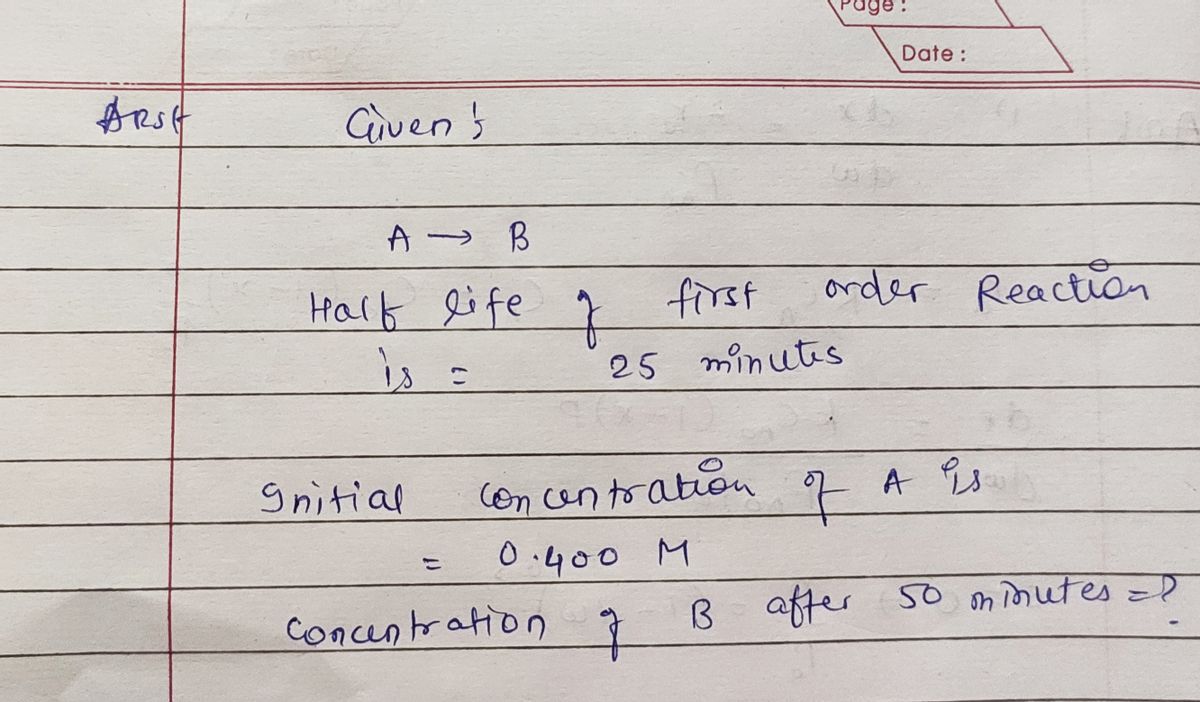 Page :
Date :
Given :
A → B
Half life of first order Reaction
is = 25 minutes
Initial concentration of A is
= 0.400 M
concentration of B after 50 minutes = ?